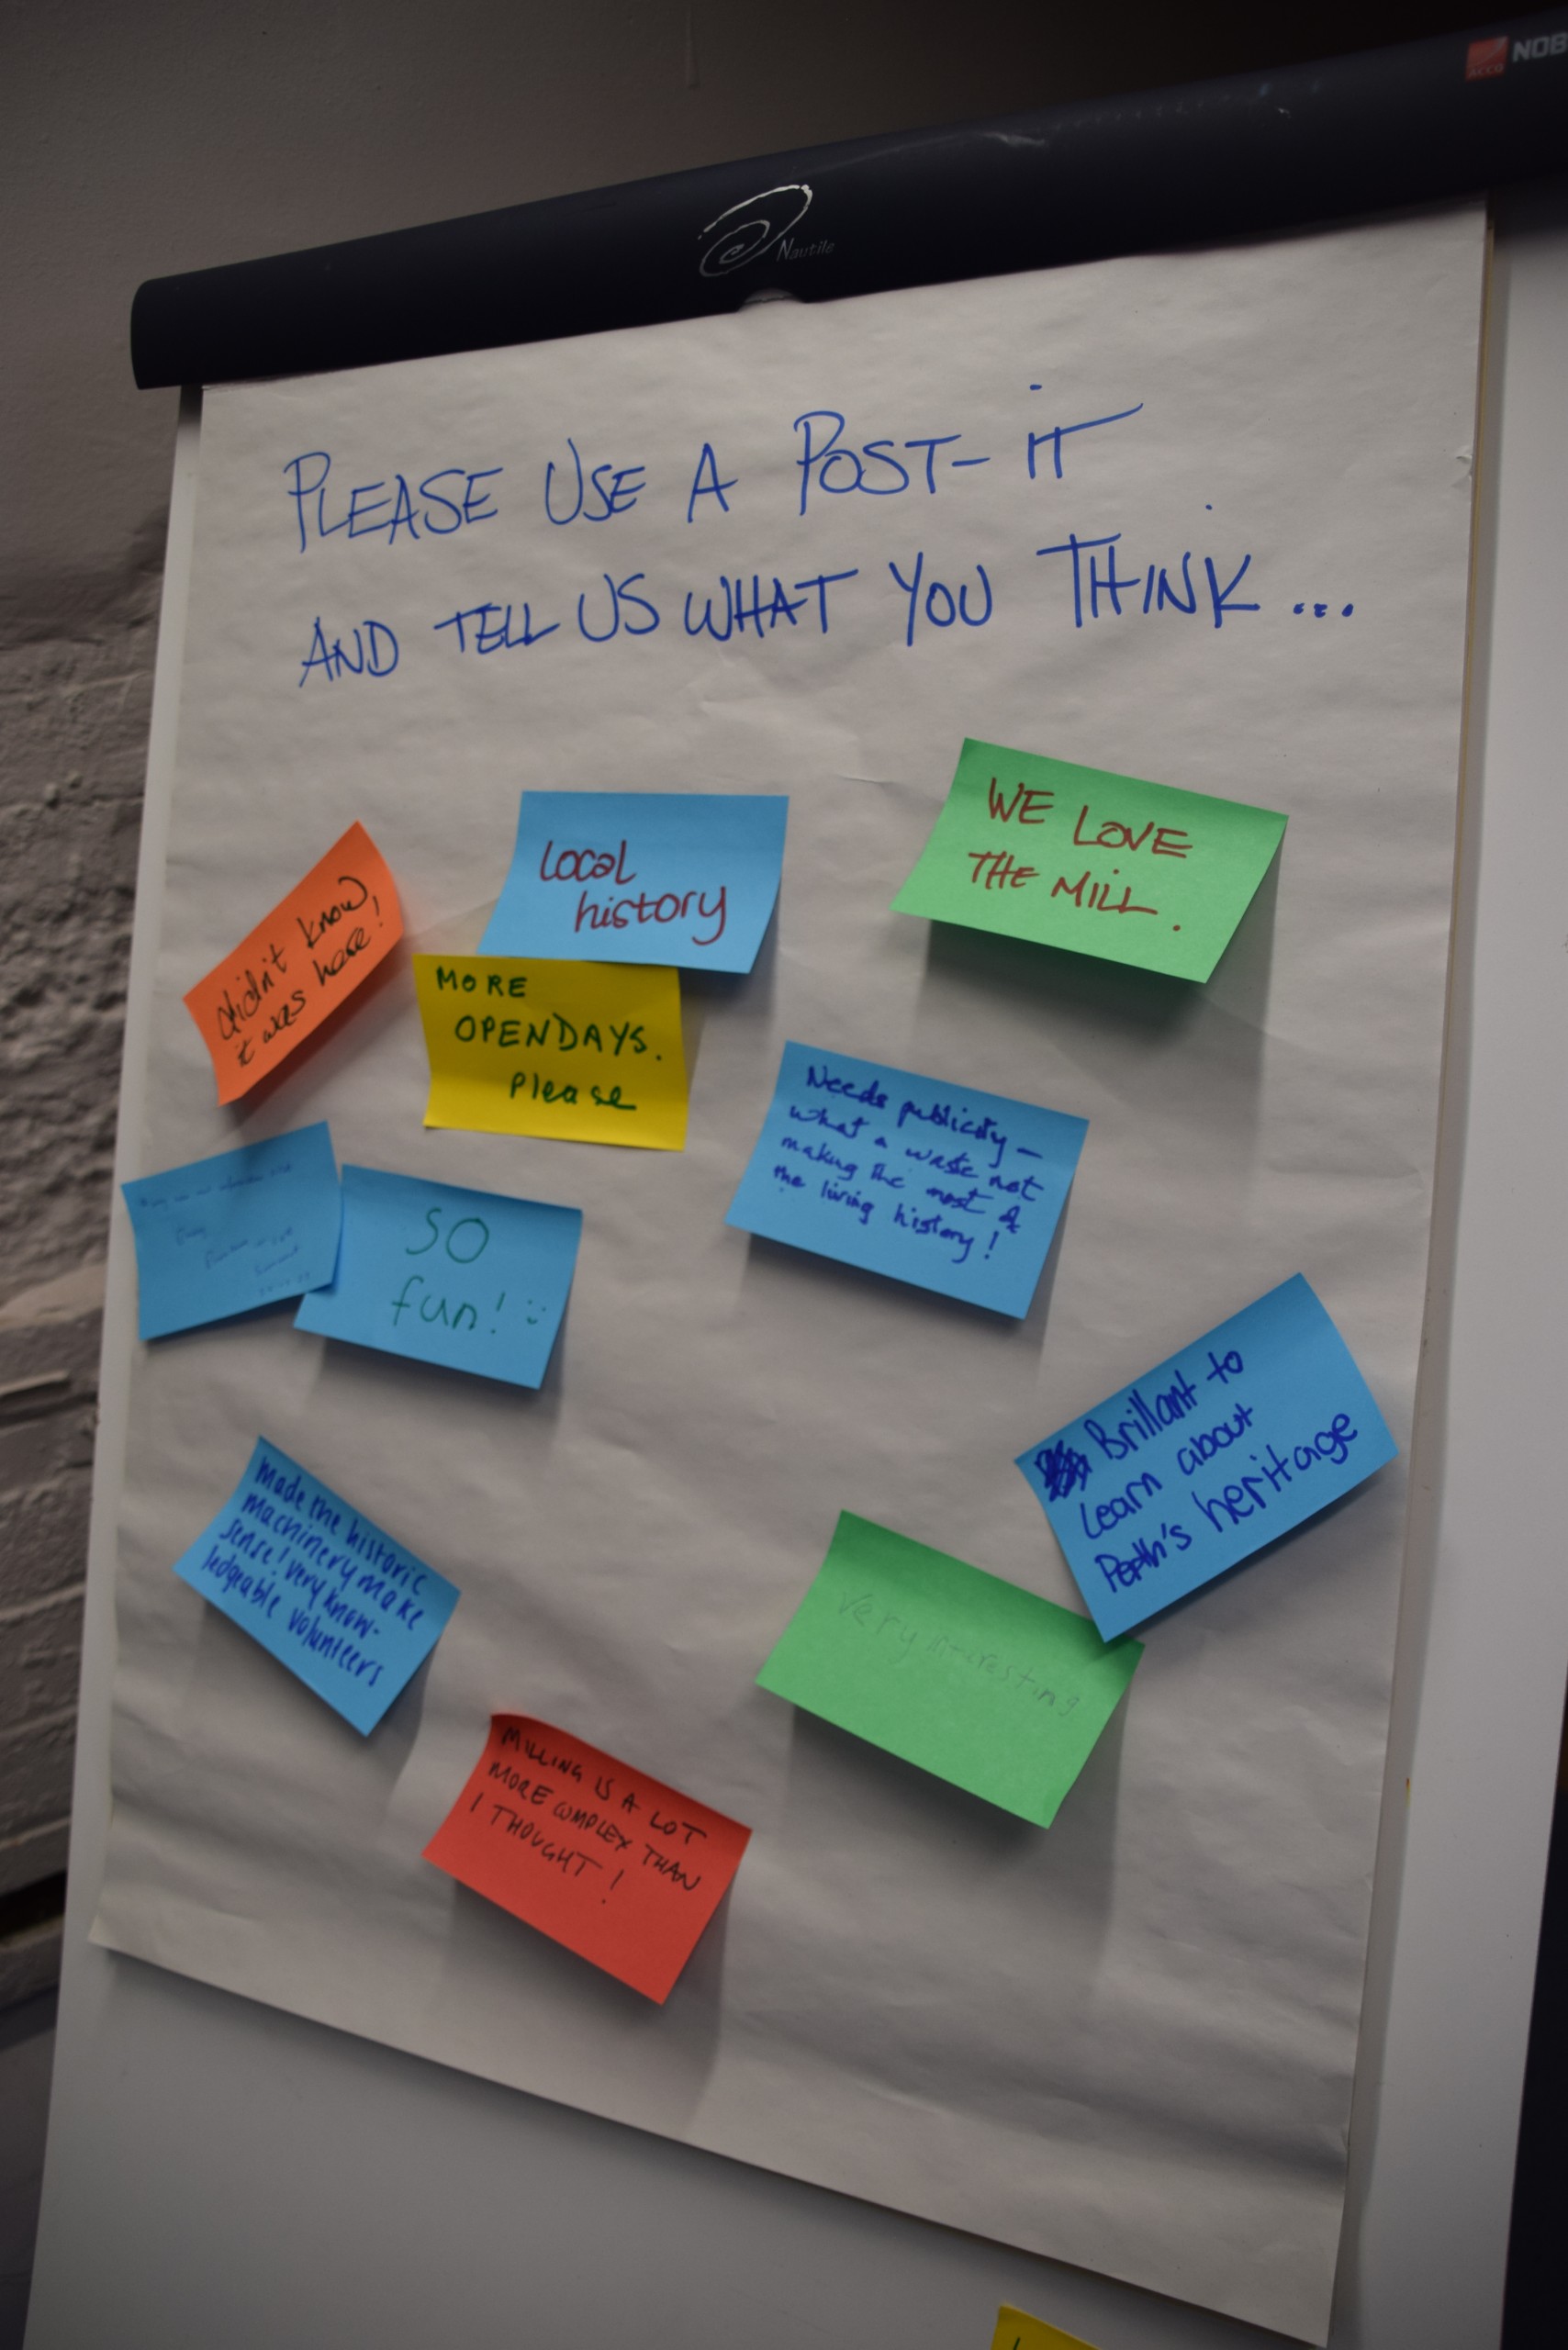 ACCO NOB
Nautile
PLEASE USE A POST-IT
AND TELL US WHAT YOU THINK...
WE LOVE
THE MILL.
Local
history
didn't know
it was here!
MORE
OPENDAYS.
Please
Needs publicity –
what a waste not
making the most of
the living history!
SO
fun! :)
Brillant to
Learn about
Perth's heritage
Made the historic
machinery make
sense! very know-
ledgeable volunteers
very interesting
MILLING IS A LOT
MORE COMPLEX THAN
I THOUGHT!